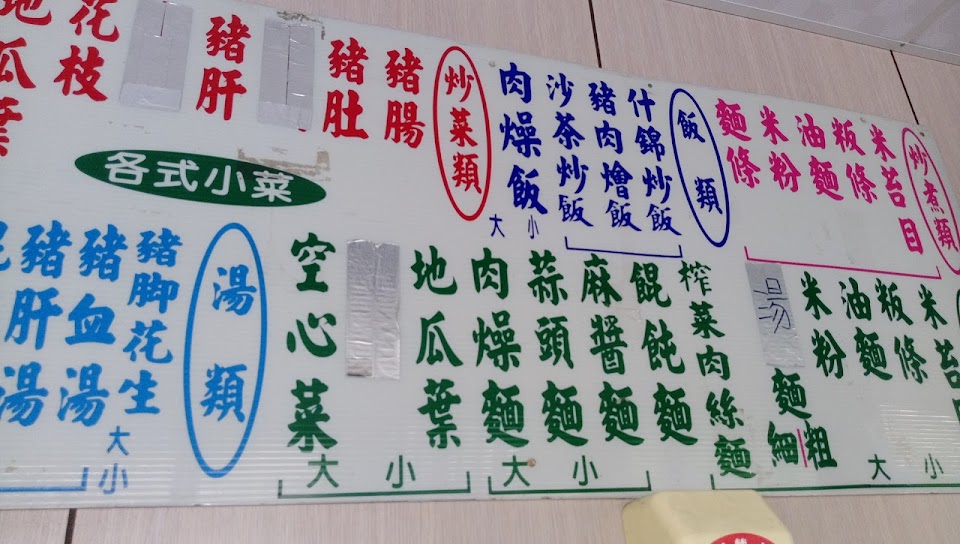 炒煮類
米苔目
粄條
油麵
米粉
麵條
飯類
什錦炒飯
豬肉燴飯
沙茶炒飯
肉燥飯
大 小
炒菜類
豬腸
豬肚
豬肝
花枝
地瓜葉
各式小菜
米苔
粄條
油麵
米粉
湯
麵
細 粗
大 小
榨菜肉絲麵
餛飩麵
麻醬麵
蒜頭麵
肉燥麵
大 小
地瓜葉
空心菜
大 小
湯類
豬脚花生
豬血湯
豬肝湯
大
小